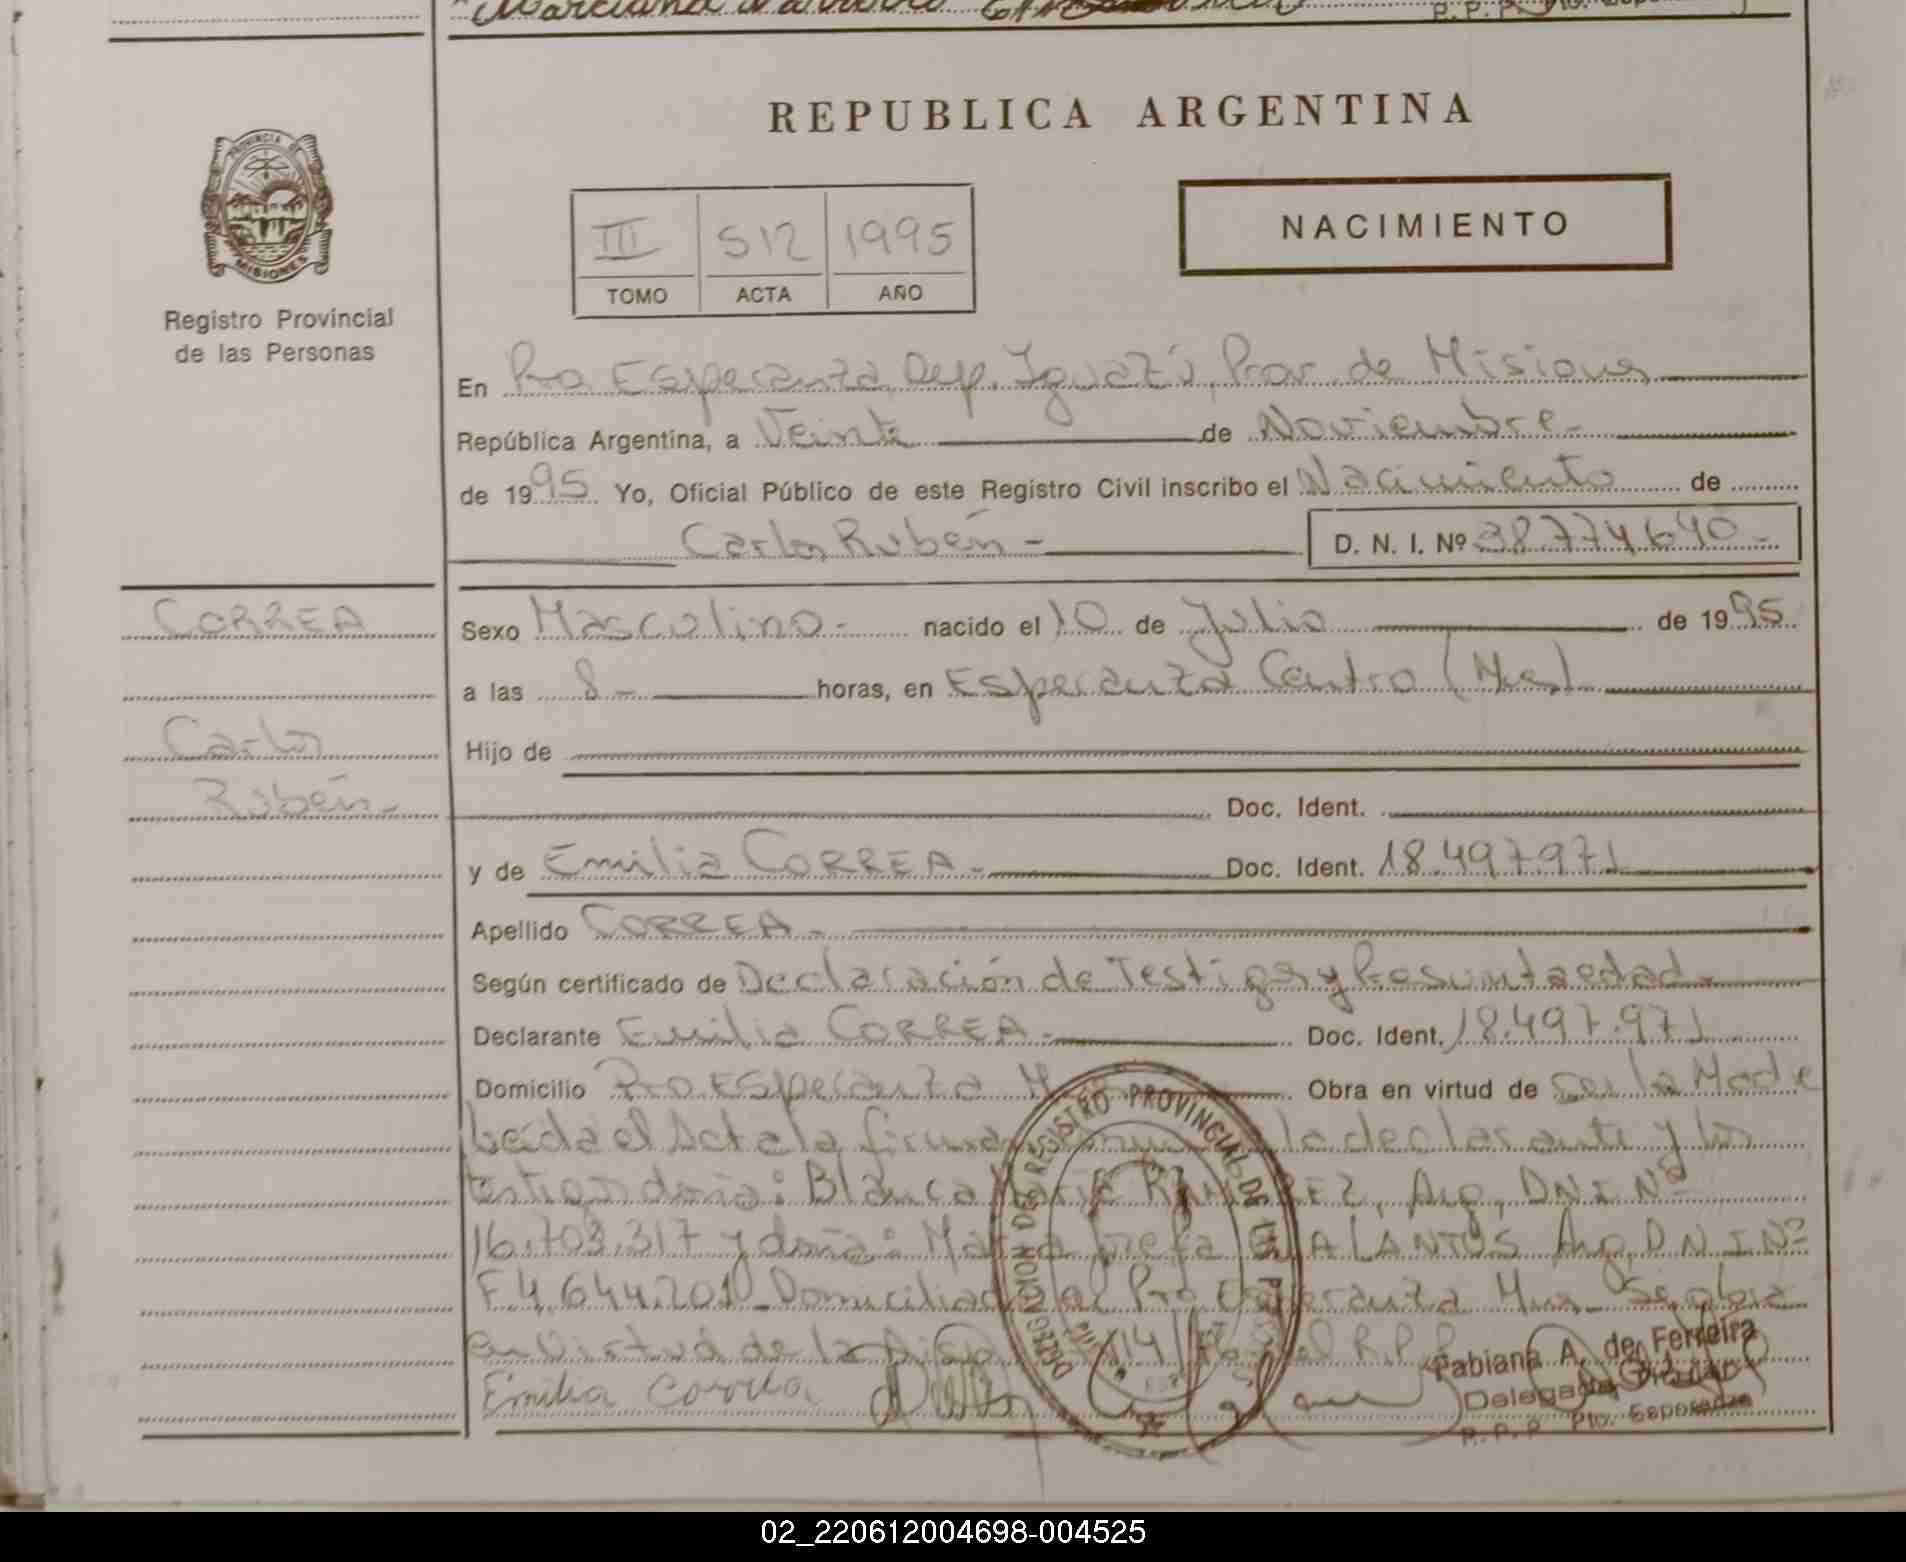 Marciana
P. P. P.
REPUBLICA ARGENTINA
PROVINCIA DE
MISIONES
Registro Provincial
de las Personas
III 512 1995
TOMO ACTA AÑO
NACIMIENTO
En Pto Esperanza, Dep. Iguazú, Prov de Misiones
República Argentina, a Veinte de Noviembre -
de 1995 Yo, Oficial Público de este Registro Civil inscribo el Nacimiento de
Carlos Rubén - D. N. I. Nº 38.774640 -
CORREA
Carlos
Rubén -
Sexo Masculino - nacido el 10 de Julio de 1995
a las 8 - horas, en Esperanza Centro (Mnes)
Hijo de
Doc. Ident.
y de Emilia CORREA - Doc. Ident. 18.497971
Apellido CORREA -
Según certificado de Declaración de Testigos y Presunta edad -
Declarante Emilia CORREA - Doc. Ident. 18.497.971
Domicilio Pto Esperanza Obra en virtud de ser la Madre
Leída el Acta la firman la declarante y los
testigos doña: Blanca María RAMIREZ, Arg, DNI Nº
16.703.317 y doña: Arg, DNI Nº
F4.644.201 - Pto Esperanza
en Virtud de la R.P.P.
Emilia Correa
DELEGACION DEL REGISTRO PROVINCIAL DE LAS
Fabiana A. de Ferreira
Delegada Titular
R. P. P. Pto. Esperanza
02_220612004698-004525